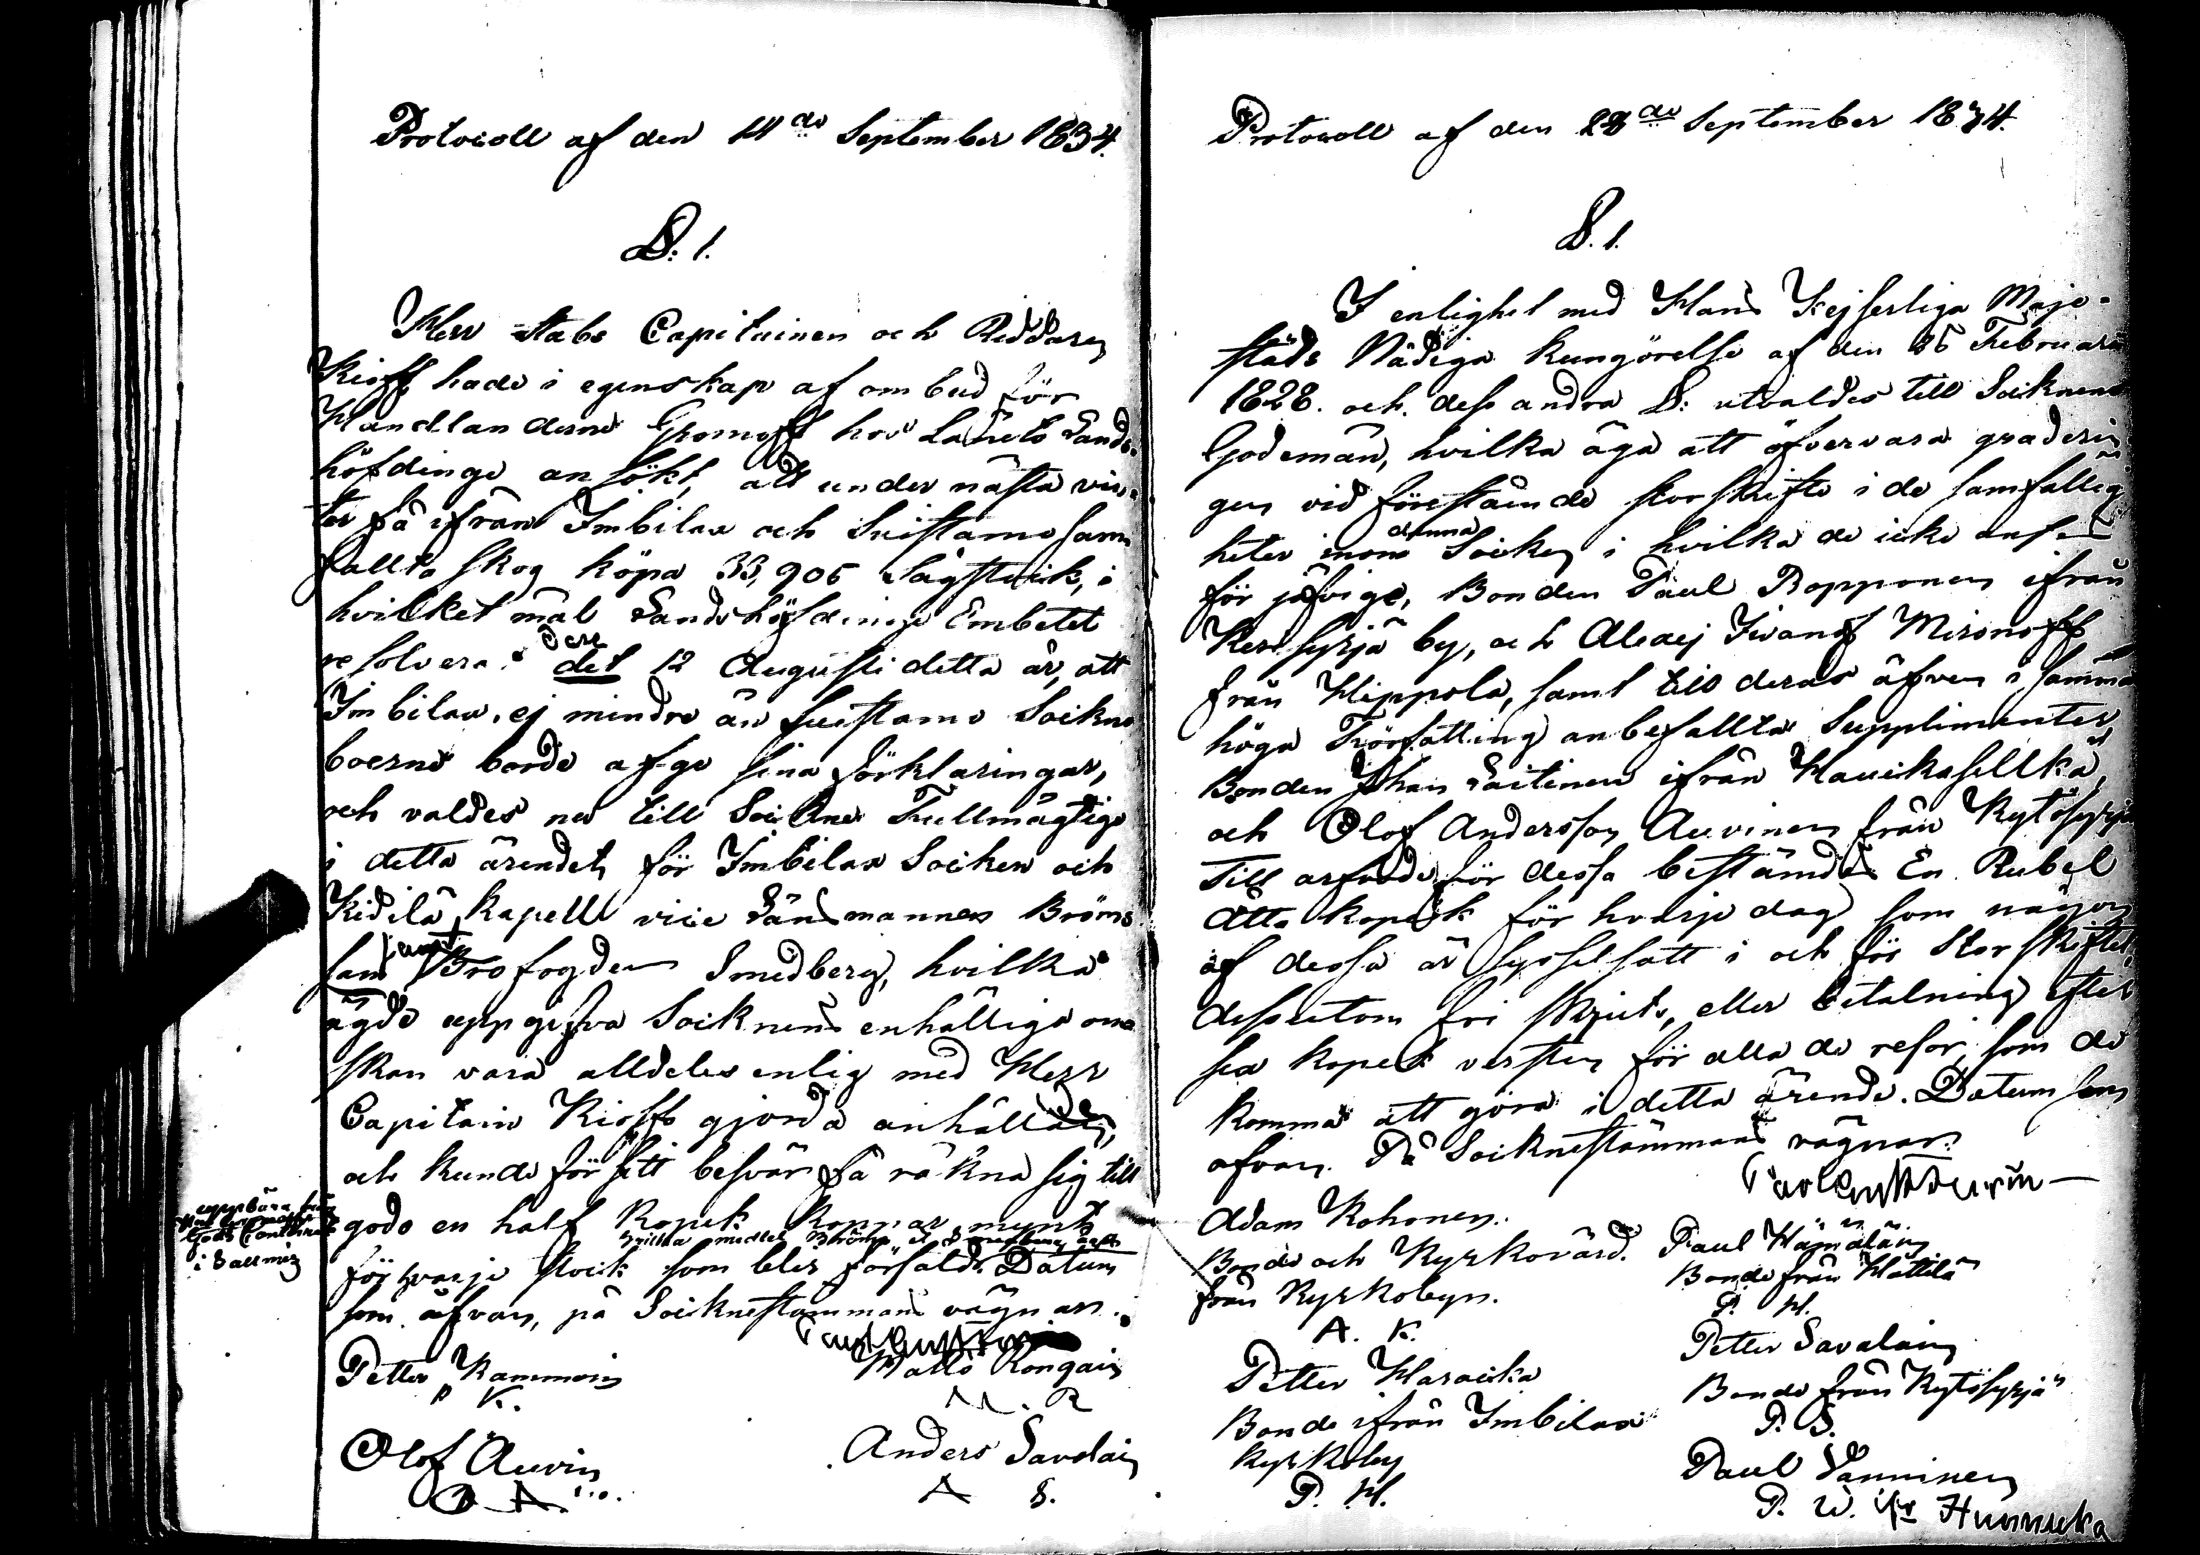 Protocoll af den 14de September 1834.
§. 1.
Herr Stabs Capitainen och Riddaren
Kioff hade i egenskap af ombud för
Handlanderne Gromoff hos Lähnets Lands-
höfdinge ansökt, att under nästa vin-
ter få ifrån Imbilax och Suistamo sam
fällta skog köpa 33,905 Sågstock, i
hvilket mål Landshöfdinge Embetet
resolverat den det 12 Augusti detta år, att
Imbilax, ej mindre än Suistamo Sockne
boerne borde afge sina förklaringar,
och valdes nu till Sockne Fullmägtige
i detta ärendet, för Imbilax Socken och
Kidilä Kapell vice Länsmannen Bröms
samt Brofogden Smedberg, hvilka
ägde uppgifva Socknens enhälliga ön
skan vara alldeles enlig med Herr
Capitain Kioffs gjorda anhållan,
och kunde för sitt besvär få räkna sig till
godo en half Kopek Koppar mynt
hvilka medel Bröms et Smedberg ägde
uppbära från
Gods Contoiret
i Salmis
för hvarje stock som blir försåld. Datum
som äfvan, på Socknestämmans vägnar.
Petter Kammoin
P K.
Matts Rongain
M. R
Olof Auvin
O A
Anders Savolain
A S.
Protocoll af den 28de September 1834.
§. 1.
I enlighet med Hans Kejserliga Maje-
stäts Nådiga Kungörelse af den 15 Februarii
1828. och dess andra §: utvaldes till Socknens
Godemän, hvilka äga att öfvervara graderin
gen vid förestående storskifte i de samfällig
heter inom denna Socken i hvilka de icke anses
för jäfvige, Bonden Paul Ropponen ifrån
Kerisyrjä by, och Alexej Iwanof Mironoff
från Hippola, samt till deras äfven i samma
höga Författing anbefallta Supplimenter
Bonden Johan Laitinen ifrån Hauikasellkä,
och Olof Andersson Auvinen från Kytösyrjä
Till arfvode för dessa bestämdes En Rubel
Åtta Kopek för hvarje dag som någon
af dessa är sysselsatt i och för Storskiftet,
dessutom fri skjuts, eller betalning efter
sex Kopek versten för alla de resor, som de
komma att göra i detta ärende. Datum som
ofvan. På Socknestämmans vägnar.
Adam Kohonen.
Bonde och Kyrkovärd.
från Kyrkobyn.
A. K.
Paul Hämäläin
Bonde från Hattila
P. H.
Petter Harakka
Bonde ifrån Imbilax
Kyrkoby
P. H.
Petter Savolain
Bonde från Kytösyrjä
P. S.
Paul Vänninen
P. W. ifr Hunnukka